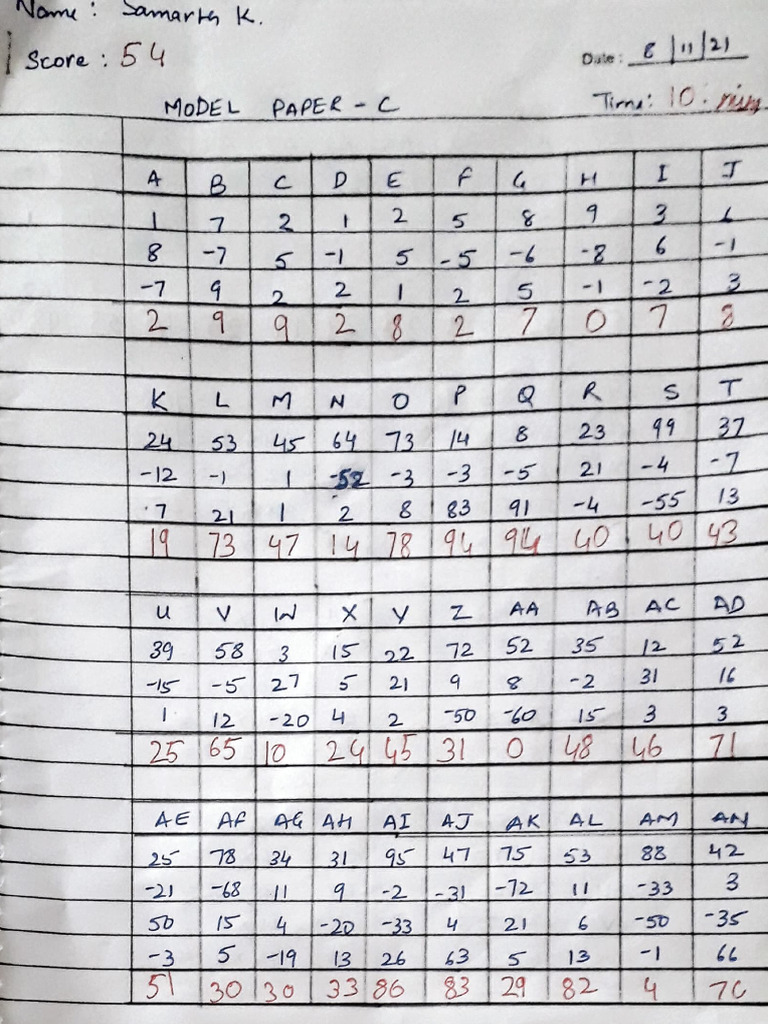 Name : Samarth K.
Score : 54
Date : 8/11/21
MODEL PAPER - C
Time: 10 : min
A B C D E F G H I J
1 7 2 1 2 5 8 9 3 6
8 -7 5 -1 5 -5 -6 -8 6 -1
-7 9 2 2 1 2 5 -1 -2 3
2 9 9 2 8 2 7 0 7 8
K L M N O P Q R S T
24 53 45 64 73 14 8 23 99 37
-12 -1 1 -52 -3 -3 -5 21 -4 -7
7 21 1 2 8 83 91 -4 -55 13
19 73 47 14 78 94 94 40 40 43
U V W X Y Z AA AB AC AD
39 58 3 15 22 72 52 35 12 52
-15 -5 27 5 21 9 8 -2 31 16
1 12 -20 4 2 -50 -60 15 3 3
25 65 10 24 45 31 0 48 46 71
AE AF AG AH AI AJ AK AL AM AN
25 78 34 31 95 47 75 53 88 42
-21 -68 11 9 -2 -31 -72 11 -33 3
50 15 4 -20 -33 4 21 6 -50 -35
-3 5 -19 13 26 63 5 13 -1 66
51 30 30 33 86 83 29 82 4 76